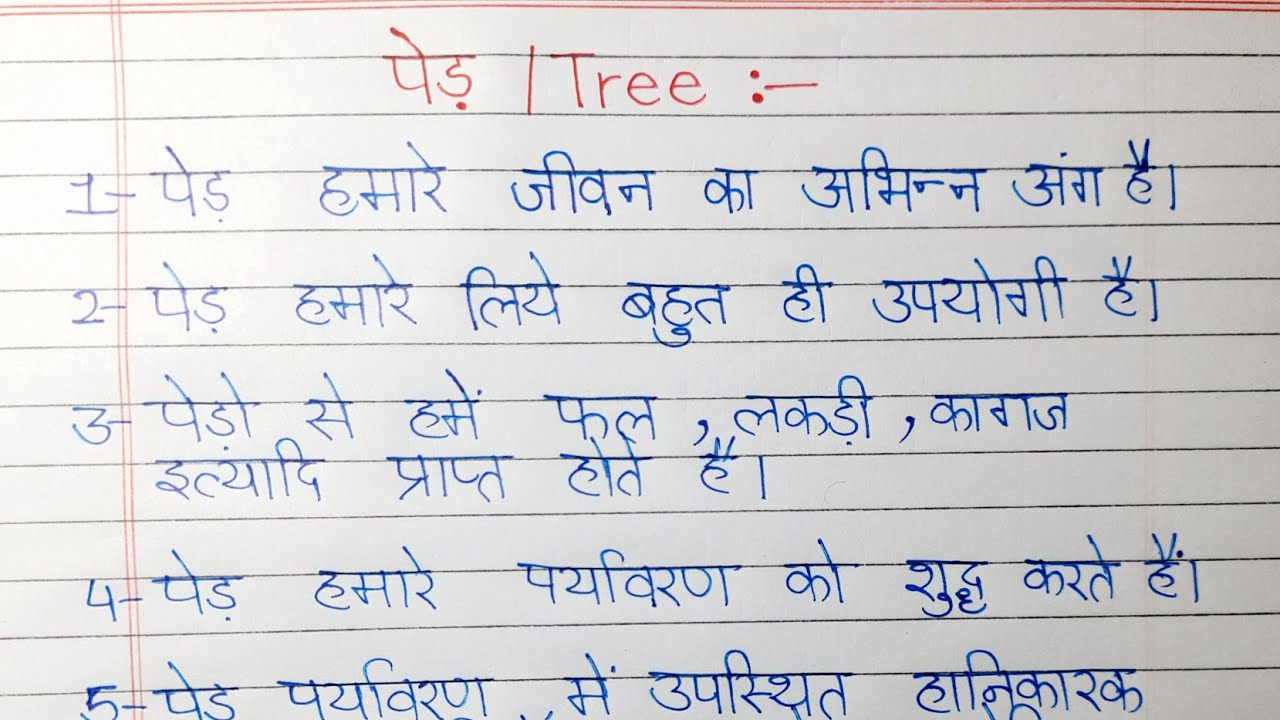 पेड़ | Tree :-
1- पेड़ हमारे जीवन का अभिन्न अंग है।
2- पेड़ हमारे लिये बहुत ही उपयोगी है।
3- पेड़ो से हमें फल , लकड़ी , कागज
इत्यादि प्राप्त होते है।
4- पेड़ हमारे पर्यावरण को शुद्ध करते हैं।
5- पेड़ पर्यावरण में उपस्थित हानिकारक